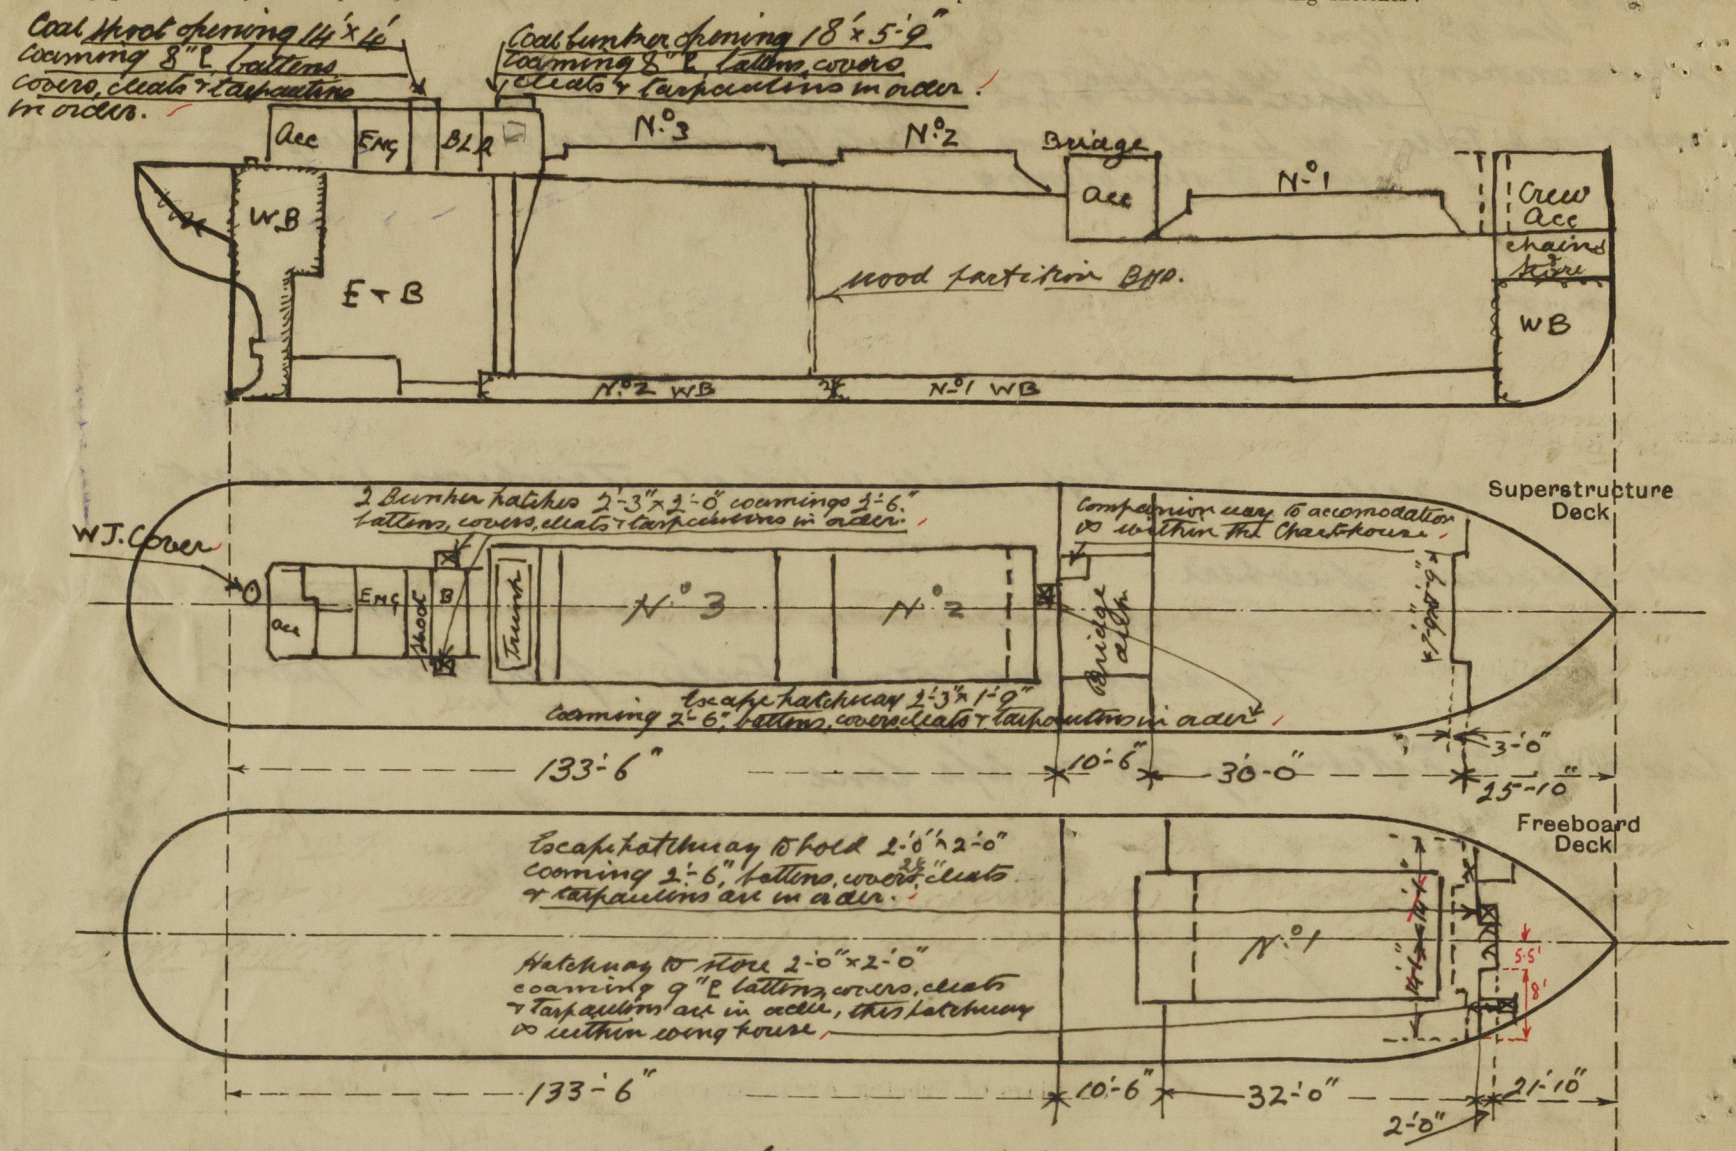 Coal shoot opening 14' × 4'
coaming 8" ℄ battens
covers, cleats & tarpaulins
in order.
Coal bunker opening 18' × 5'-9"
Coaming 8" ℄ battens, covers
cleats & tarpaulins in order.
Acc
ENG
BLR
Nº3
Nº2
Bridge
Acc
Nº1
Crew
Acc
chains
&
store
WB
WB
E & B
wood partition BHD.
Nº2 WB
Nº1 WB
Superstructure
Deck
2 Bunker hatches 2'-3" × 2'-0" coamings 2'-6"
battens, covers, cleats & tarpaulins in order.
Companion way to accomodation
is within the Charthouse.
W.T. Cover
Acc
ENG
Shoot
B
Trunk
Nº3
Nº2
Bridge
Escape hatchway 2'-3" × 1'-9"
coaming 2'-6", battens, covers, cleats & tarpaulins in order
133'-6"
10'-6"
30'-0"
3'-0"
25'-10"
Freeboard
Deck
Escape hatchway to hold 2'-0" × 2'-0"
coaming 2'-6", battens, covers 2½", cleats
& tarpaulins are in order.
Hatchway to store 2'-0" × 2'-0"
coaming 9" ℄ battens, covers, cleats
& tarpaulins are in order, this hatchway
is within wing house,
Nº1
5.5'
8'
133'-6"
10'-6"
32'-0"
2'-0"
21'-10"